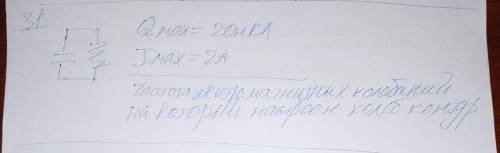 31
Qmax = 20нКл
Imax = 2A
Частота электромагнитных колебаний
на который настроен колеб контур